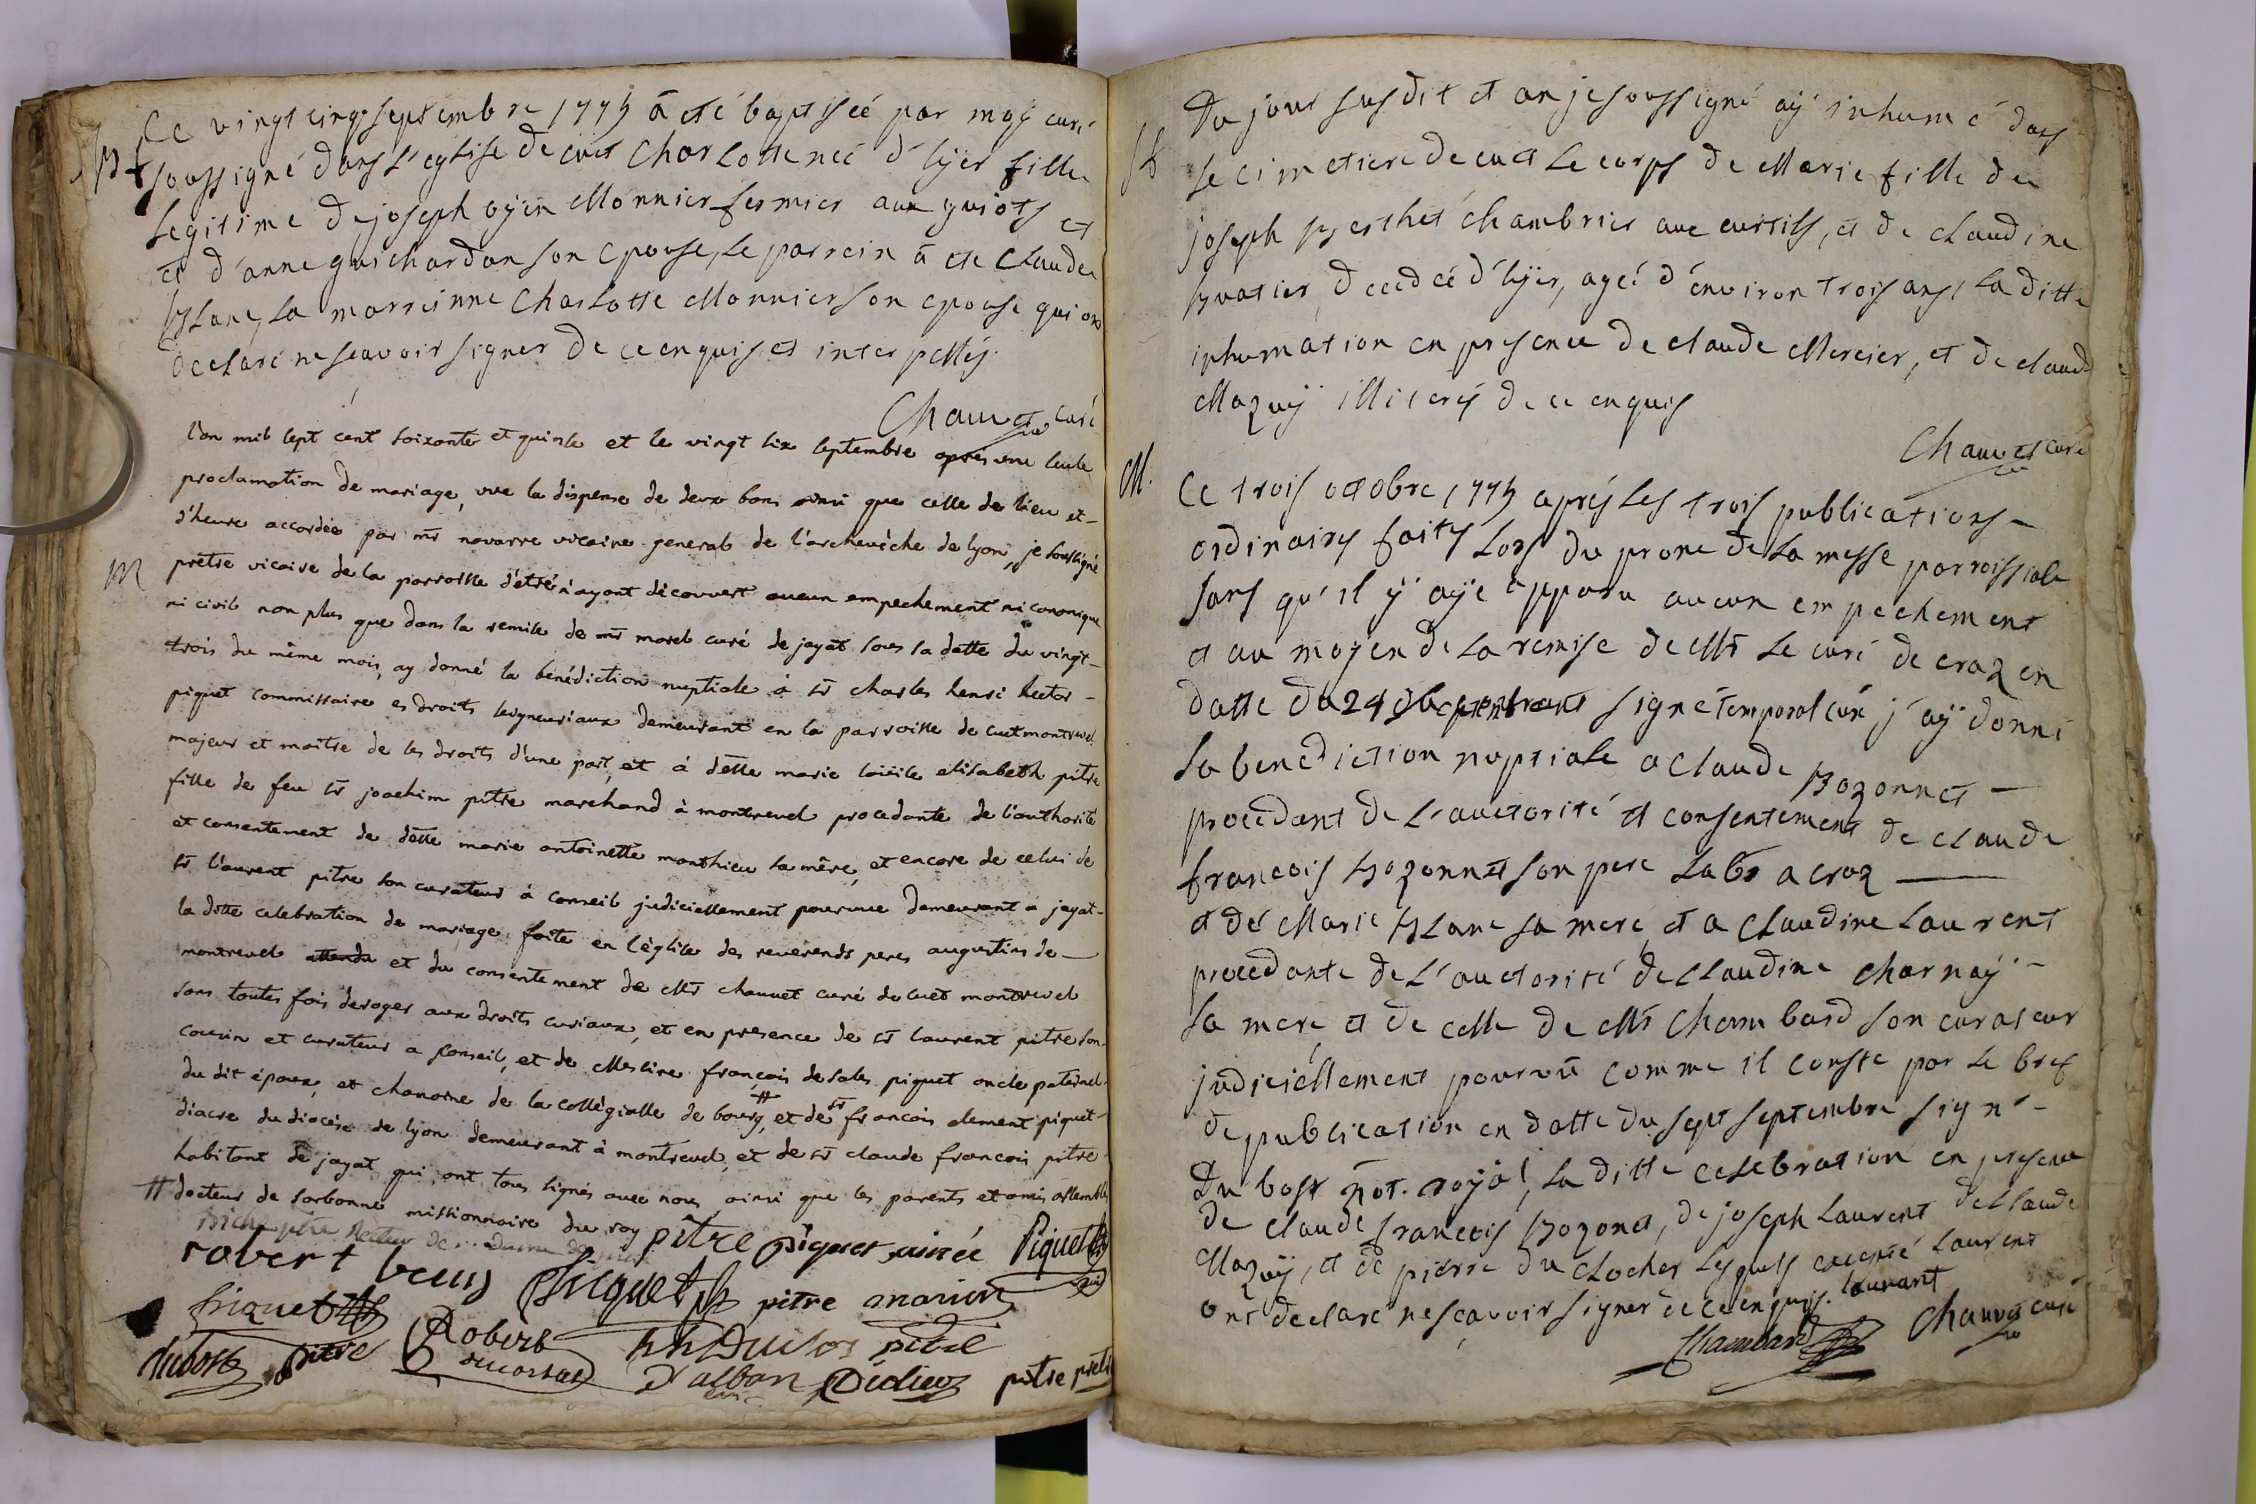 Ce vingt cinq septembre 1775 à eté baptiséé par moÿ curé
soussigné dans l'eglise de cuet Charlotte neé d'hÿer fille
legitime de joseph oÿen Monnier fermier aux guiots et
et d'anne guichardon son epouse, le parrein à eté Claude
Blanc, la marreinne Charlotte Monnier son epouse qui ont
declaré ne sçavoir signer de ce enquis et interpellés.
Chauvet curé
l'an mil sept cent soixante et quinse et le vingt six septembre apres une seule
proclamation de mariage, vue la dispense de deux bans ainsi que celle de lieu et
d'heure accordée par mr navarre vicaire general de l'archevêche de lyon, je soussigné
M
prêtre vicaire de la parroisse d'étré n'ayant découvert aucun empechement ni canonique
ni civil non plus que dans la remise de mr morel curé de jayat sous la datte du vingt-
trois du même mois, ay donné la bénédiction nuptiale à sr charles henri hector
piquet commissaire es droits seigneuriaux demeurant en la parroisse de cuet montrevel
majeur et maitre de ses droits d'une part, et à delle marie loüise elisabeth pitre
fille de feu sr joachim pitre marchand à montrevel procedante de l'authorite
et consentement de delle marie antoinette monthieu sa mère, et encore de celui de
sr laurent pitre son curateur à conseil judiciellement pourvue demeurant a jayat-
la ditte celebration de mariage faite en l'église des reverends peres augustins de
montrevel attendu et du consentement de Mr chauvet curé de cuet montrevel
sans toutes fois deroger aux droits curiaux, et en presence de sr laurent pitre son
cousin et curateur a conseil, et de Messire françois de sales piquet oncle paternel
du dit époux, et chanoine de la collégialle de bourg, # et de sr francois clement piquet
diacre du diocèse de lyon demeurant à montrevel, et de sr claude francois pitre
habitant de jayat qui ont tous signés avec nous, ainsi que les parents et amis assemblés
# docteur de sorbonne missionnaire du roy
pitre piquet ainée Piquet
robert Picquet pitre
Piquet
dubost pitre Robert ducorsal Duclos pitre
D'alban Didieu pitre
Du jour susdit et an je soussigné aÿ inhumé dans
le cimetiere de cuet le corps de Marie fille de
joseph Berthet chambrier aux curtils, et de claudine
Buatier, decedéé d'hÿer, ageé d'environ trois ans, la ditte
inhumation en presence de claude Mercier, et de claude
Mazuÿ illiterés de ce enquis
Chauvet curé
M.
Ce trois octobre 1775 aprés les trois publications
ordinaires faites lors du prone de la messe parroissiale
sans qu'il ÿ aÿe apparu aucun empechement
et au moyen de la remise de Mr le curé de craz en
datte du 24 signé temporal curé j'aÿ donné
la benediction nuptiale a claude Bozonnet
procedant de l'auctorité et consentement de claude
francois Bozonnet son pere labr a craz
et de Marie Blanc sa mere, et a Claudine laurent
procedante de l'auctorité de claudine charnaÿ
sa mere, et de celle de Mr Chambard son curateur
judiciéllement pourvû comme il conste par le bref
de publication en datte du sept septembre signé
Du bost not. royal, la ditte celebration en presence
de claude francois Bozonet, de joseph laurent de claude
Mazuÿ, et de pierre du clocher lesquels excepté laurent
ont declaré ne sçavoir signer de ce enquis. laurant
Chambard Chauvet curé